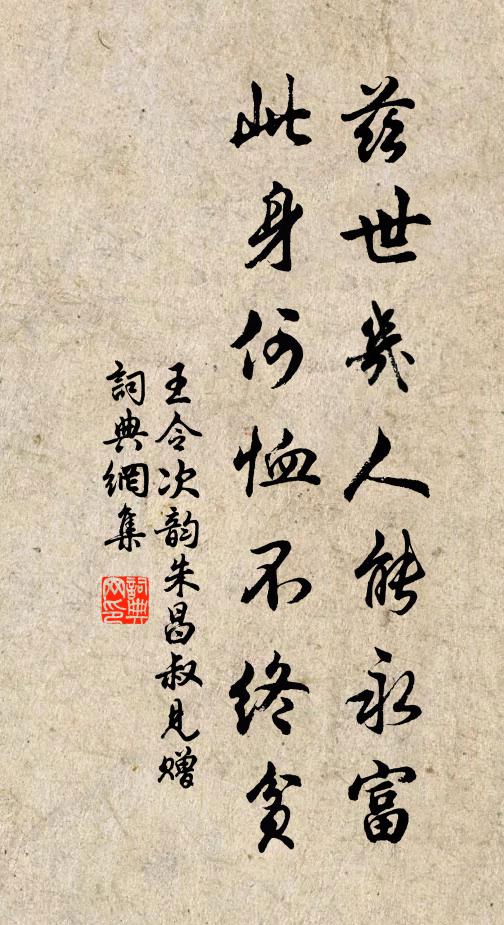 茲世幾人能永富
此身何恤不終貧
王令次韵朱昌叔見贈
詞典網集
詞典網印